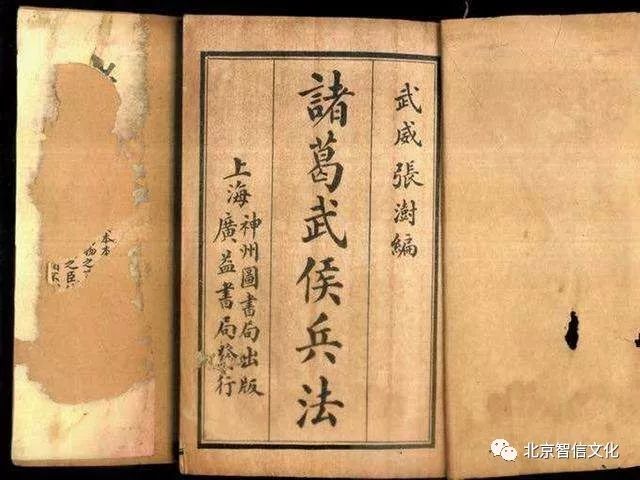 武威張澍編
諸葛武侯兵法
上海
神州圖書局出版
廣益書局發行
本木
之臣
北京智信文化